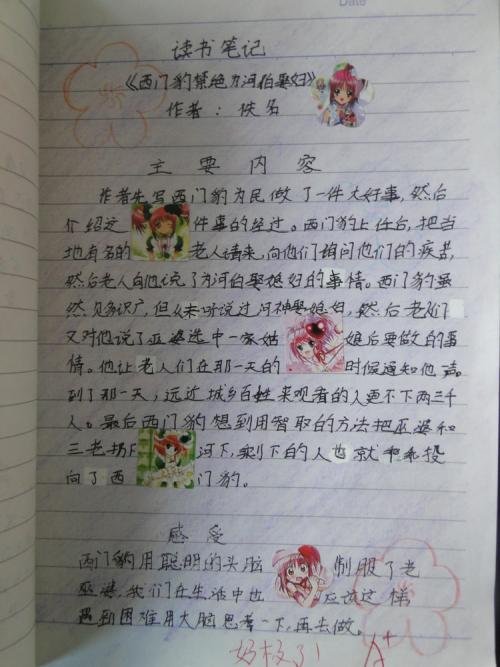 Date
读书笔记
《西门豹禁绝为河伯娶妇》
作者：佚名
主要内容
作者先写西门豹为民做了一件大好事，然后
介绍这件事的经过。西门豹上任后，把当
地有名的老人请来，向他们相问他们的疾苦，
然后老人向他说了为河伯娶媳妇的事情。西门豹虽
然见多识广，但从未听说过河神娶媳妇，然后老人们
又对他说了巫婆选中一家姑娘后要做的事
情。他让老人们在那一天的时候通知他一声。
到了那一天，远近城乡百姓来观看的人更不下两三千
人。最后西门豹想到用智取的方法把巫婆和
三老扔下河下，剩下的人也就
向了西门豹。
感受
西门豹用聪明的头脑制服了老
巫婆，我们在生活中也应该这样
遇到困难用大脑思考一下，再去做。
好极了！A+